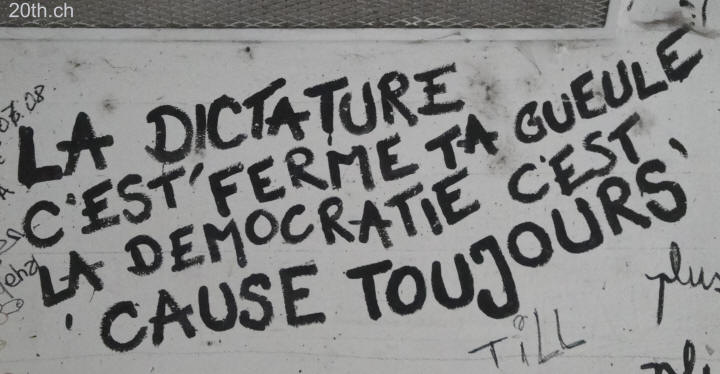 20th.ch
LA DICTATURE
C'EST 'FERME TA GUEULE
LA DEMOCRATIE C'EST,
'CAUSE TOUJOURS'
TiLL
plus